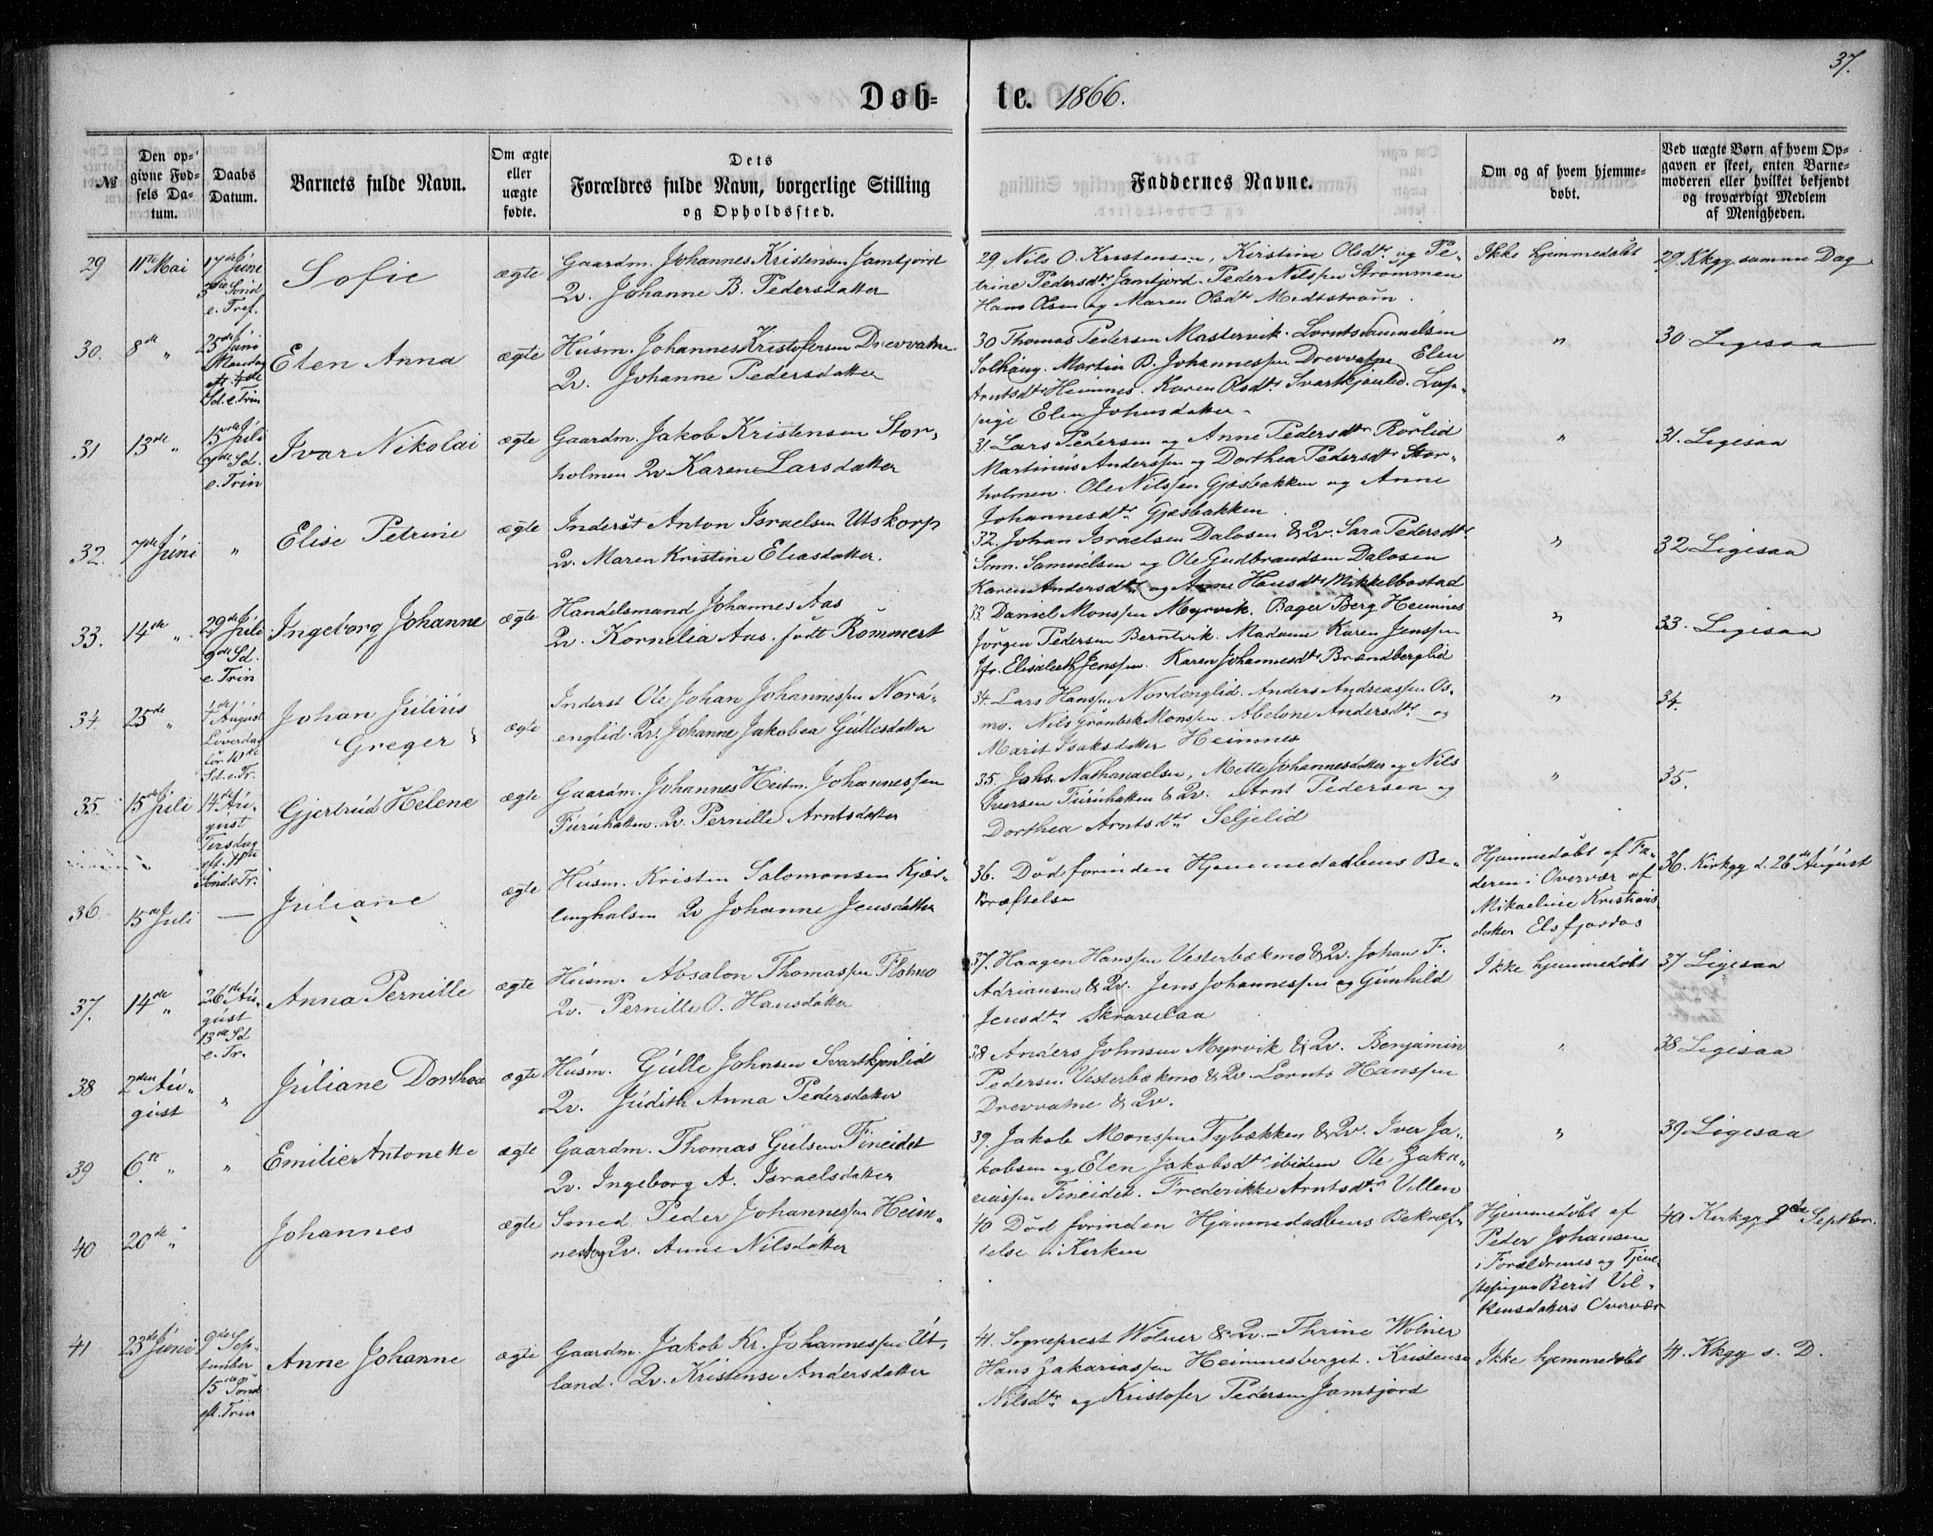 37.
Døb=
te. 1866.
№
Den op=
givne Fød=
sels Da=
tum.
Daabs
Datum.
Barnets fulde Navn.
Om ægte
eller
uægte
fødte.
Dets
Forældres fulde Navn, borgerlige Stilling
og Opholdssted.
Faddernes Navne.
Om og af hvem hjemme=
døbt.
Ved uægte Børn af hvem Op=
gaven er skeet, enten Barne=
moderen eller hvilket bekjendt
og troværdigt Medlem
af Menigheden.
29
11te Mai
17de Juni
3die Sønd
e. Tref.
Sofie
ægte
Gaardm. Johannes Kristensen Jamtjord
Qv. Johanne B. Pedersdatter
29. Nils O. Kristensen, Kirstine Olsdtr og Pe-
trine Pedersdtr Jamtjord. Peder Nilssen Strømmen
Hans Olsen og Maren Olsdtr Medtstrøm.
Ikke hjemmedøbt
29. Kkgg. samme Dag
30.
8de "
25de Juni
Mandag
eft. 4de
Sd. e. Trin
Elen Anna
ægte
Husm. Johannes Kristofersen Drevvatne
Qv. Johanne Pedersdatter
30 Thomas Pedersen Mastervik. Lornts Samuelsen
Solhaug. Martin B. Johannessen Drevvatne. Elen
Arntsdtr Heimnes. Karen Olsdtr Svartkjønlid.
Elen Johnsdatter
"
30 Ligesaa
31
13de "
15de Juli
7de Sd.
e. Trin
Ivar Nikolai
ægte
Gaardm. Jakob Kristensen Stor-
holmen Qv Karen Larsdatter
31. Lars Pedersen og Anne Pedersdtr Rørlid
Martinus Anderssen og Dorthea Pedersdtr Stor-
holmen. Ole Nilssen Gjesbakken og Anne
Johannesdtr Gjesbakken
"
31. Ligesaa
32.
7de Juni
"
Elise Petrine
ægte
Inderst Anton Israelsen Utskorp
Qv. Maren Kristine Eliasdatter.
32. Johan Israelsen Dalosen & Qv. Sara Pedersdtr
Sam. Samuelsen og Ole Gudbrandsen Dalosen
Karen Andersdtr og Anne Hansdtr Mikkelbostad
"
32 Ligesaa
33.
14de "
29de Juli
9de Sd.
e. Trin
Ingeborg Johanne
ægte
Handelsmand Johannes Aas
Qv. Kornelia Aas. født Rommert
33. Daniel Monssen Myrvik. Bager Berg Heimnes
Jørgen Pedersen Berntvik. Madame Karen Jenssen
Jfr. Elisabeth Jenssen. Karen Johannesdtr Brændberglid
"
33. Ligesaa
34.
25de "
August
Løverdag
før 10de
Sd. e. Tr.
Johan Julius
Greger
ægte
Inderst Ole Johan Johannessen Nord-
englid. Qv. Johanne Jakobea Gullesdatter
34. Lars Hanssen Nordenglid. Anders Andreassen Os-
mo. Nils Grønbek Monssen. Abelone Andersdtr og
Marit Isaksdatter Heimnes
"
34.
35.
15de Juli
14de Au-
gust
Tirsdag
eft. 11te
Sønd. e. Tr.
Gjertrud Helene
ægte
Gaardm. Johannes Heitm. Johannessen
Furuhatten. Qv. Pernille Arntsdatter
35. Johs. Nathanaelsen, Mette Johannesdatter og Nils
Iversen Furuhatten & Qv. Arnt Pedersen og
Dorthea Arntsdtr Seljelid
"
35.
36.
15de Juli
—
Juliane
ægte
Husm. Kristen Salomonsen Kjer-
linghalsen Qv Johanne Jensdatter
36. Død forinden Hjemmedaabens Be-
kræftelse
Hjemmedøbt af Fa-
deren i Overvær af
Mikaeline Kristians-
datter Elsfjordos
36. Kirkgg. d. 26de August
37.
14de "
26de Au-
gust
13de Sd
e. Tr.
Anna Pernille
ægte
Husm. Absalon Thomassen Flatmo
Qv. Pernille O. Hansdatter
37. Haagen Hanssen Vesterbækmo & Qv. Johan F.
Adriansen & Qv. Jens Johannessen og Gunhild
Jensdtr Skravelaa
Ikke hjemmedøbt
37 Ligesaa
38
2den Au-
gust
"
Juliane Dorthea
ægte
Husm. Gulle Johnsen Svartkjønlid
Qv. Judith Anna Pedersdatter
38 Anders Johnsen Myrvik & Qv. Benjamin
Pedersen Vesterbækmo & Qv. Lornts Hanssen
Drevvatne & Qv.
"
38 Ligesaa
39
6te "
"
Emilie Antonette
ægte
Gaardm. Thomas Gulsen Fineidet
Qv. Ingeborg A. Israelsdatter
39. Jakob Monssen Tybækken & Qv. Iver Ja-
kobsen og Elen Jakobsdtr ibidem Ole Zaka-
riassen Fineidet. Frederikke Arntsdtr Villen
"
39. Ligesaa
40
20de "
Johannes
ægte
Smed Peder Johannessen Heim-
nes og Qv. Anne Nilsdatter
40 Død forinden Hjemmedaabens Bekræf-
telse i Kirken
Hjemmedøbt af
Peder Johansen
i Forældrenes og Tjene-
stepigen Berit Vil-
kensdatters Overvær
40 Kirkgg. Septbr.
41
23de Juni
9de Sep-
tember
15de Sønd.
eft. Trin
Anne Johanne
ægte
Gaardm. Jakob Kr. Johannessen Ut-
land. Qv. Kristense Andersdatter
41. Sogneprest Wolner & Qv. – Thrine Wolner
Hans Zakariassen Heimnesberget. Kristense
Nilsdtr og Kristofer Pedersen Jamtjord
Ikke hjemmedøbt
41. Kkgg s. D.